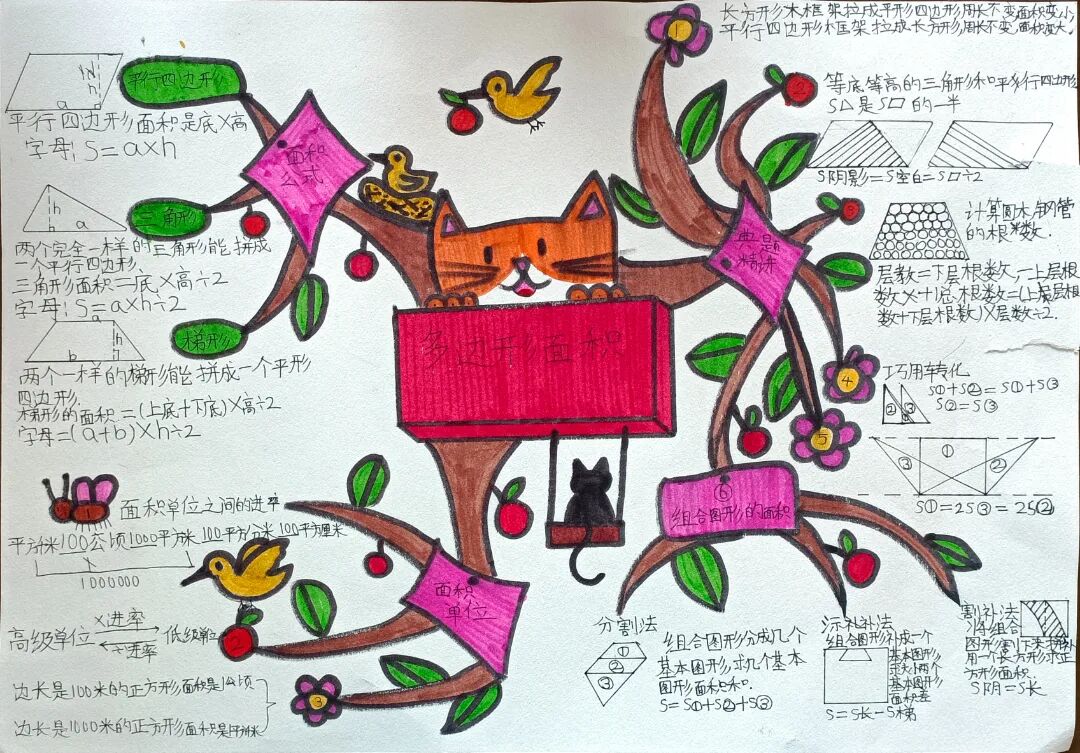 多边形面积
面积
公式
平行四边形
a
h
平行四边形面积是底×高
字母:S=a×h
三角形
h
h
a
两个完全一样的三角形能拼成
一个平行四边形.
三角形面积=底×高÷2
字母:S=a×h÷2
梯形
a
b
h
两个一样的梯形能拼成一个平形
四边形.
梯形的面积=(上底+下底)×高÷2
字母=(a+b)×h÷2
面积
单位
面积单位之间的进率
100公顷
100平方分米 100平方厘米
1000000
高级单位
×进率
÷进率
低级单位
②
边长是100米的正方形面积是1公顷
边长是1000米的正方形面积是
③
典题
精讲
长方形木框架拉成平形四边形,周长不变面积变小,
平行四边形框架拉成长方形,周长不变,面积变大。
①
②
等底等高的三角形和平形行四边形
S△是S□的一半
S阴影=S空白=S□÷2
计算圆木/钢管
的根数.
层数=下层根数-上层根
数×+1
总根数=(上层层根
数+下层根数)×层数÷2.
④
巧用转化
S①+S②=S①+S③
S②=S③
② ① ③
⑤
③ ① ②
S①=2S③=2S②
⑥
组合图形的面积
分割法
①
②
③
组合图形分成几个
基本图形,求几个基本
图形面积和.
S=S①+S②+S③
添补法
组合图形补成一个
基本图形
两个
基本图形
面积差
S=S长-S梯
割补法
用一个长方形求正
方形面积.
S阴=S长